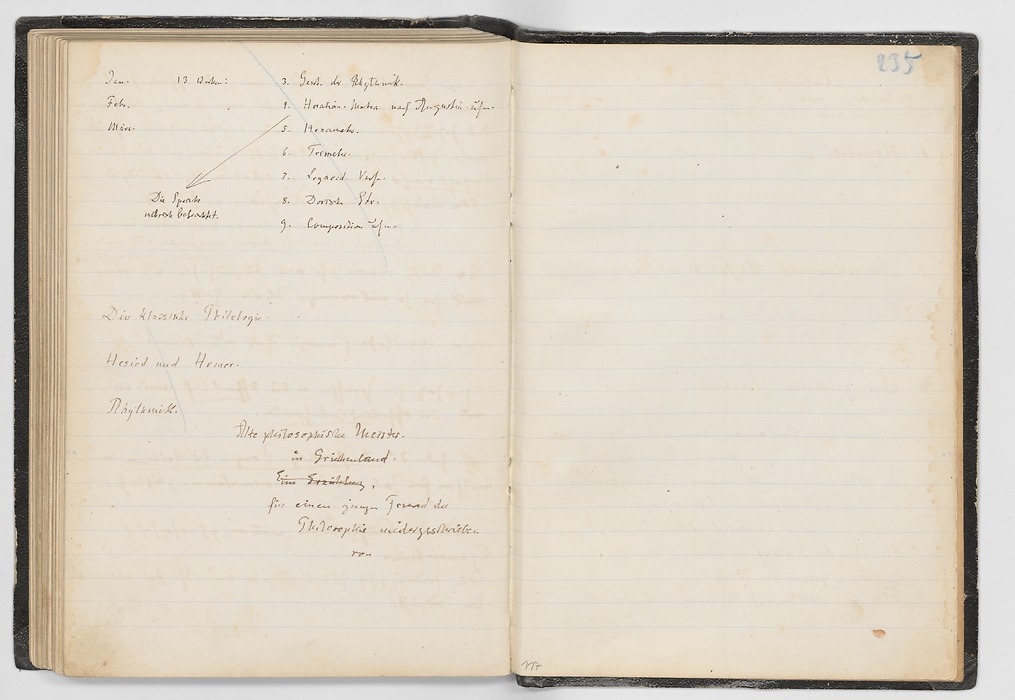 Jan. 13 Wochen: 3. Gesch. der Rhythmik.
Febr. 4. Horatian. Metra nach Augustin
März. 5. Hexameter.
6. Trimeter.
7. Logaoed. Verse.
8. Dorische Str.
9. Composition
Die Sprache
metrisch betrachtet.
Die klassische Philologie.
Hesiod und Homer.
Rhythmik.
Alte philosophische Meister
in Griechenland.
Eine Erzählung,
für einen jungen Freund der
Philosophie niedergeschrieben
von
235